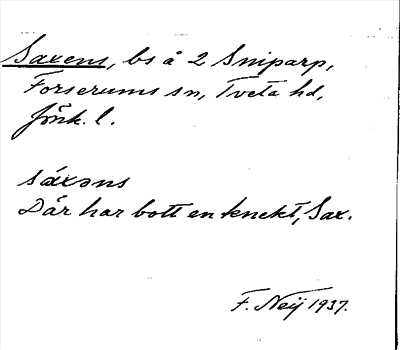 Saxens, bs å 2 Sniparp,
Forserums sn, Tveta hd,
Jönk. l.
sáxəns
Där har bott en knekt, Sax.
F. Neij 1937.